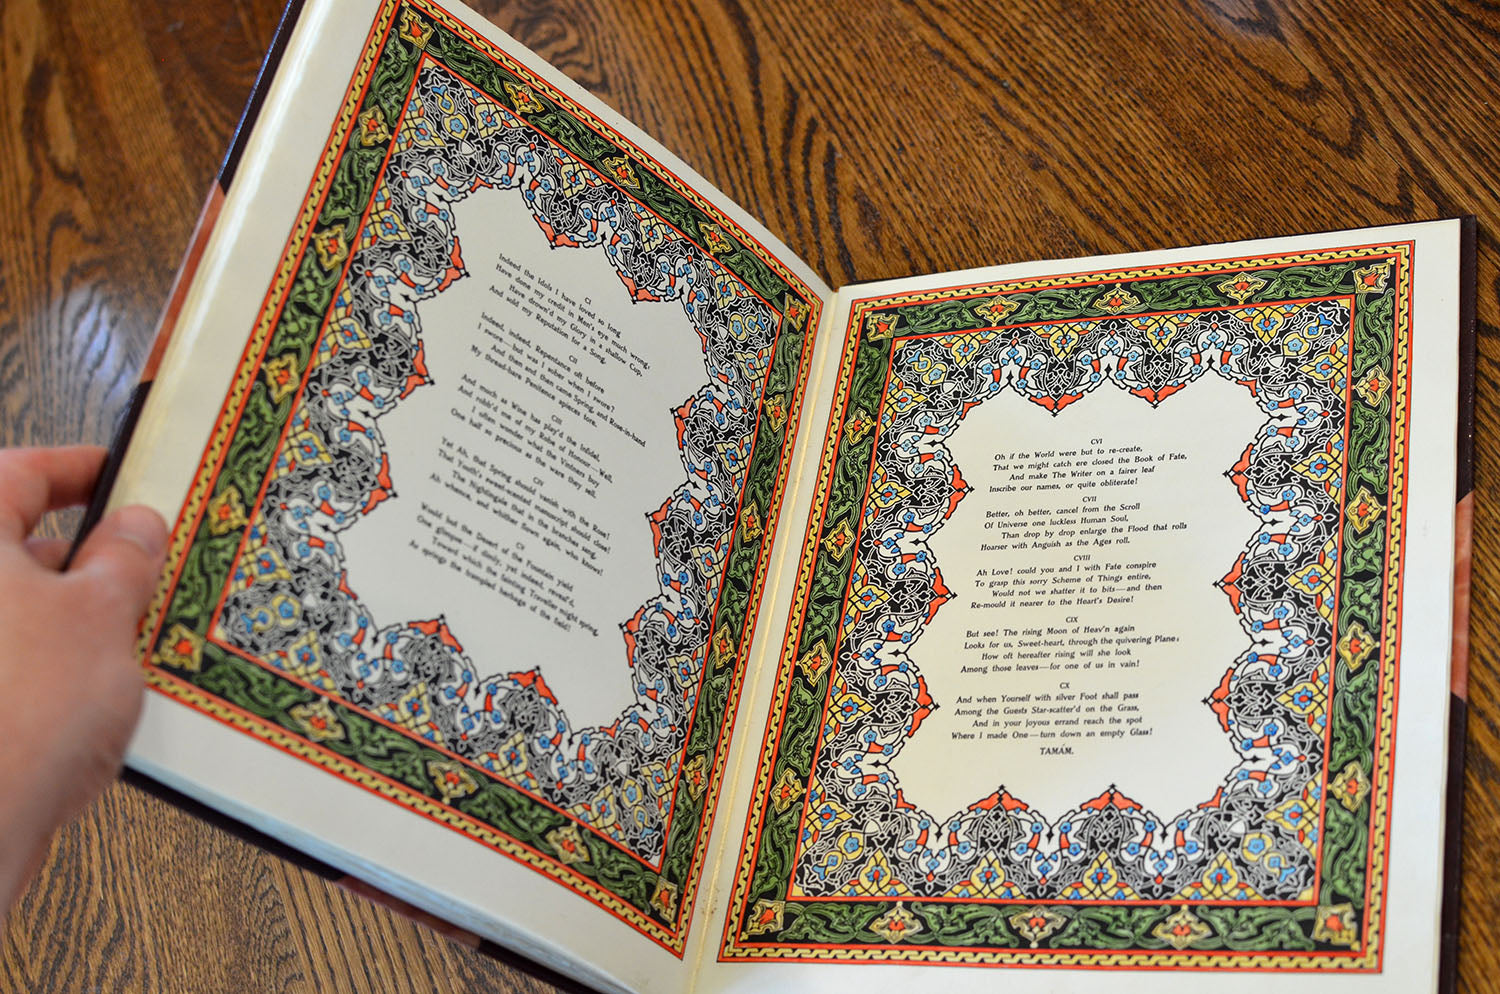 CI
Indeed the Idols I have loved so long
Have done my credit in Men's eye much wrong,
Have drown'd my Glory in a shallow Cup,
And sold my Reputation for a Song.
CII
Indeed, indeed, Repentance oft before
I swore—but was I sober when I swore?
And then and then came Spring, and Rose-in-hand
My thread-bare Penitence apieces tore.
CIII
And much as Wine has play'd the Infidel,
And robb'd me of my Robe of Honour—Well,
I often wonder what the Vintners buy
One half so precious as the ware they sell.
CIV
Yet Ah, that Spring should vanish with the Rose!
That Youth's sweet-scented manuscript should close!
The Nightingale that in the branches sang,
Ah whence, and whither flown again, who knows!
CV
Would but the Desert of the Fountain yield
One glimpse—if dimly, yet indeed, reveal'd,
Toward which the fainting Traveller might spring,
As springs the trampled herbage of the field!
CVI
Oh if the World were but to re-create,
That we might catch ere closed the Book of Fate,
And make The Writer on a fairer leaf
Inscribe our names, or quite obliterate!
CVII
Better, oh better, cancel from the Scroll
Of Universe one luckless Human Soul,
Than drop by drop enlarge the Flood that rolls
Hoarser with Anguish as the Ages roll.
CVIII
Ah Love! could you and I with Fate conspire
To grasp this sorry Scheme of Things entire,
Would not we shatter it to bits—and then
Re-mould it nearer to the Heart's Desire!
CIX
But see! The rising Moon of Heav'n again
Looks for us, Sweet-heart, through the quivering Plane:
How oft hereafter rising will she look
Among those leaves—for one of us in vain!
CX
And when Yourself with silver Foot shall pass
Among the Guests Star-scatter'd on the Grass,
And in your joyous errand reach the spot
Where I made One—turn down an empty Glass!
TAMÁM.